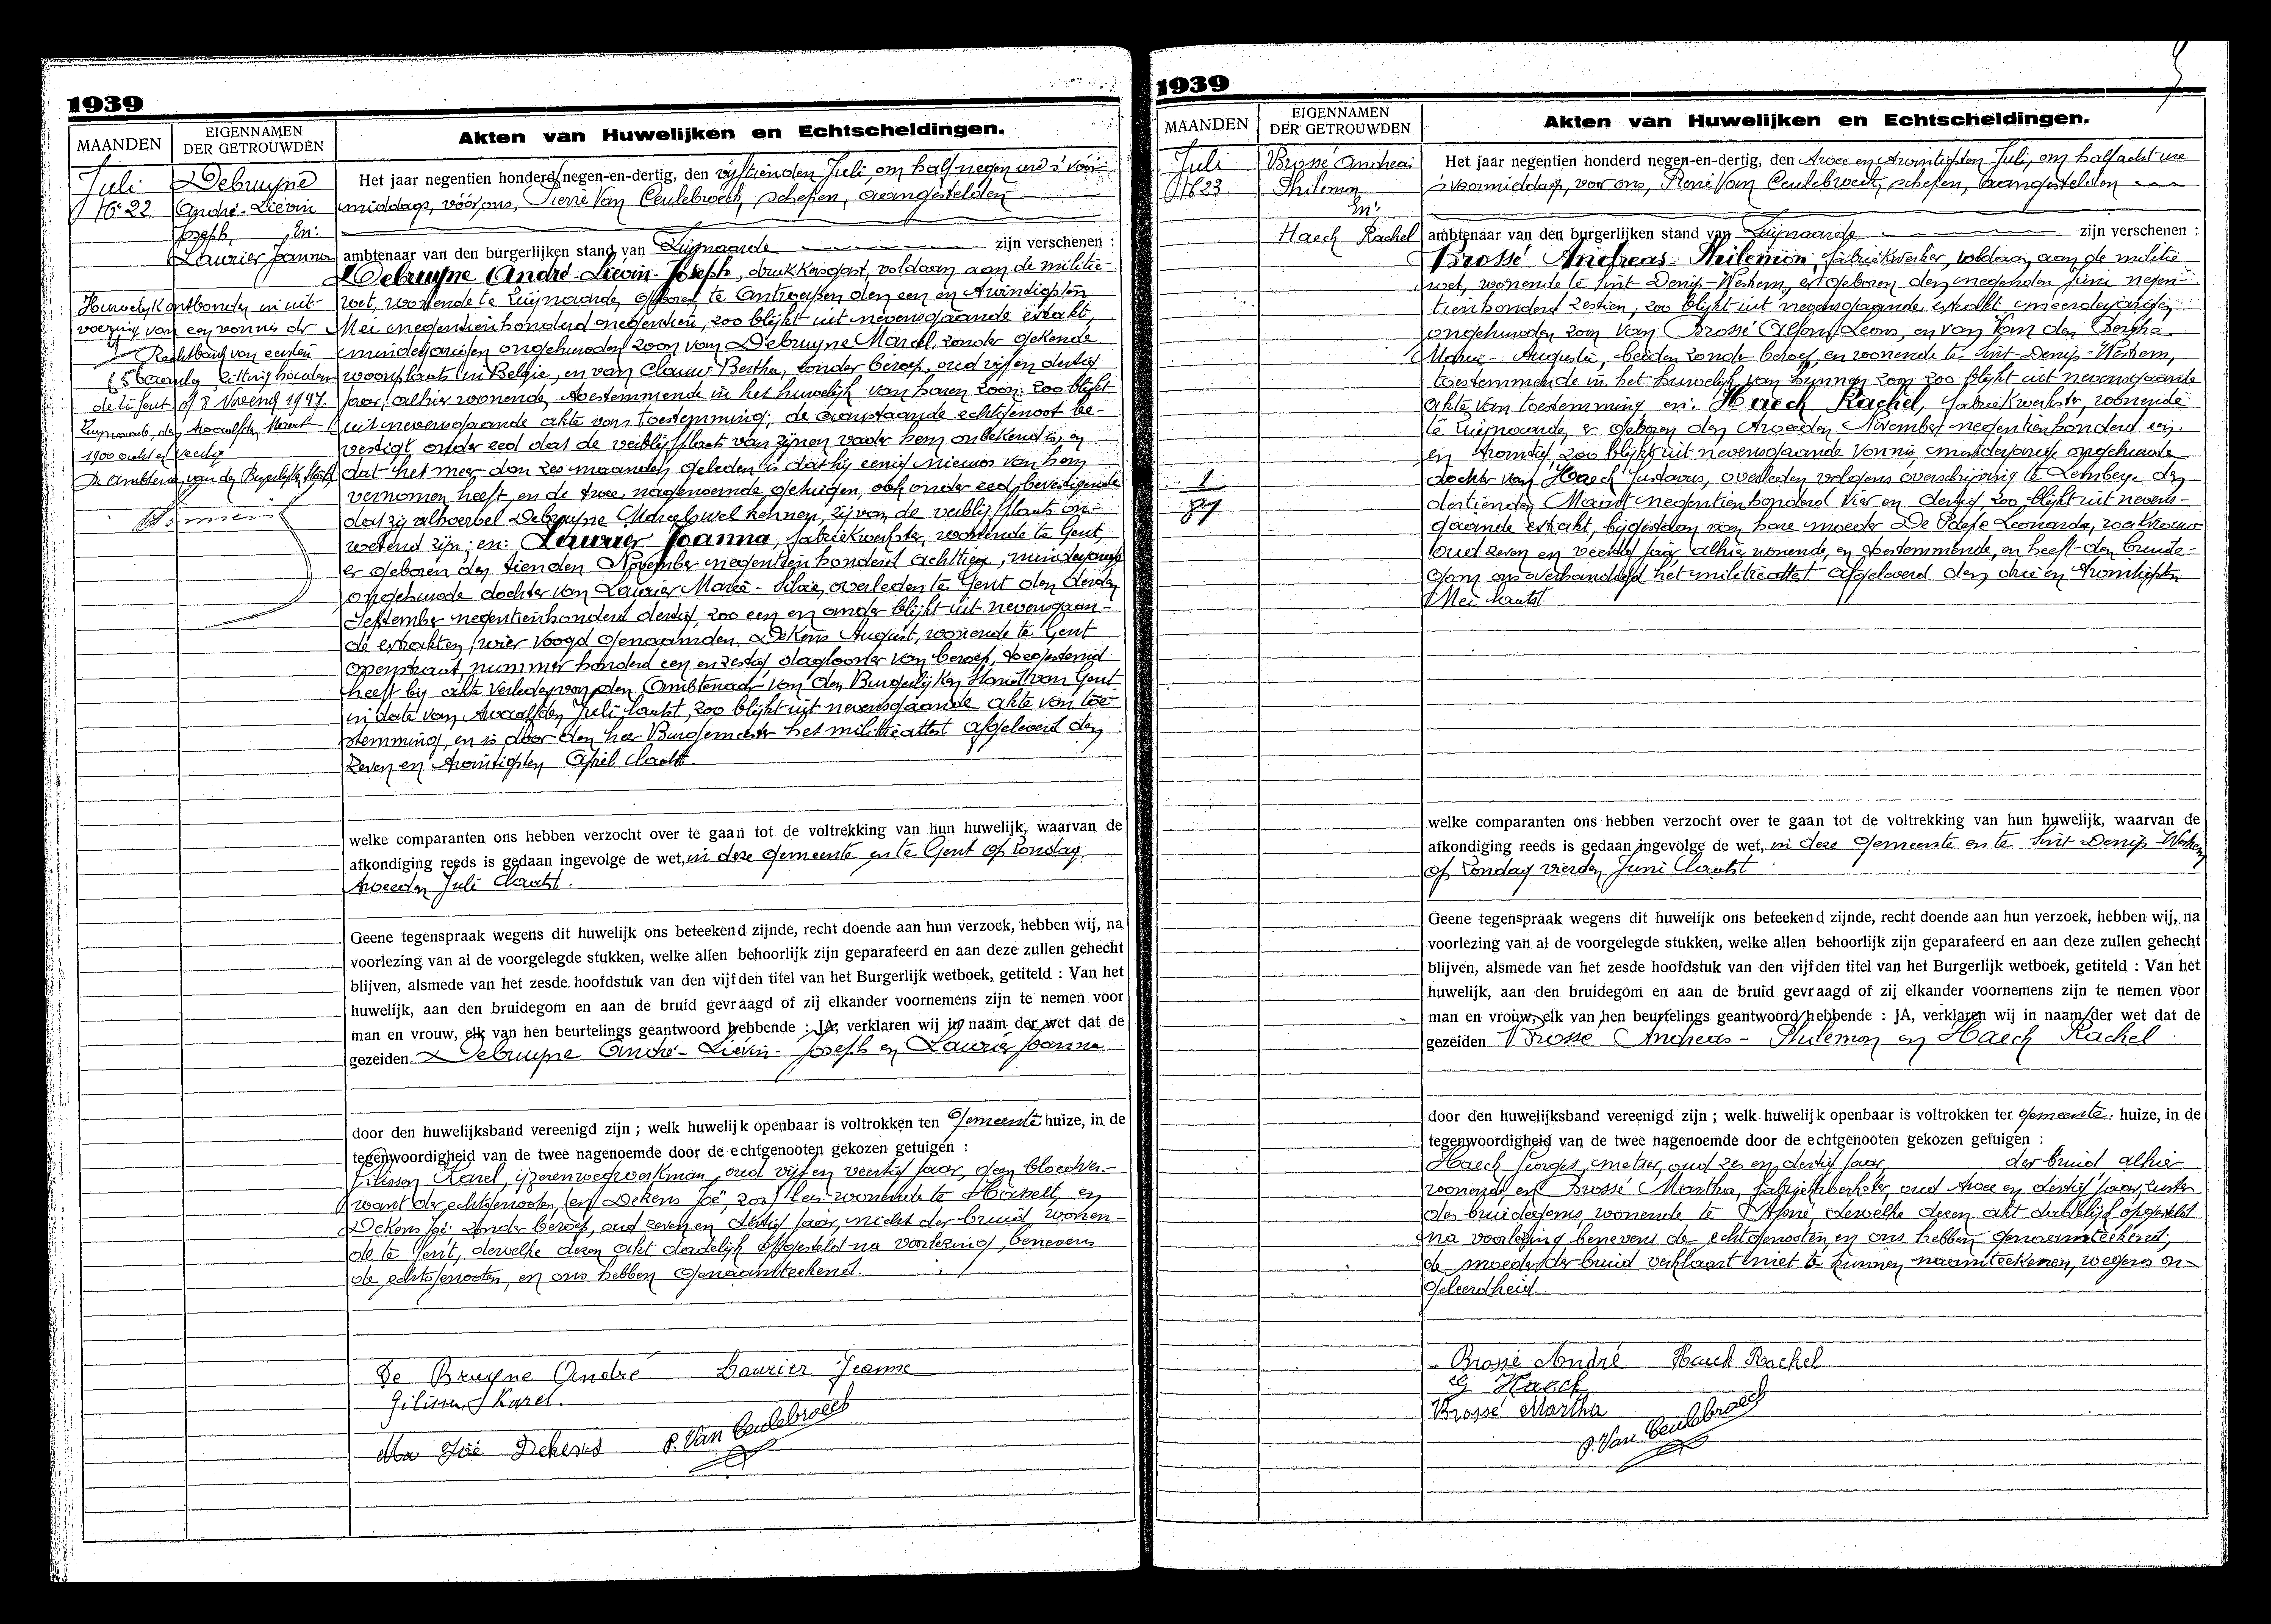 1939
MAANDEN
EIGENNAMEN
DER GETROUWDEN
Akten van Huwelijken en Echtscheidingen.
Juli
N° 22
Debruyne
André-Liévin
Joseph, En:
Laurier Joanna
Huwelijk ontbonden in uit-
voering van een vonnis der
Rechtbank van eersten
aanleg zitting houden-
de te Gent op 8 Novemb 1947.
Zwijnaarde, den twaalfden Maart
1900 acht en veertig
De Ambtenaar van den Burgerlijken Stand
Het jaar negentien honderd negen-en-dertig, den vijftienden Juli, om half negen ure 's voor-
middags, vóór ons, Pierre Van Ceulebroeck, schepen, aangestelden
ambtenaar van den burgerlijken stand van Zwijnaarde zijn verschenen :
Debruyne André-Liévin-Joseph, drukkersgast, voldaan aan de militie-
wet, wonende te Zwijnaarde, geboren te Antwerpen den een en twintigsten
Mei negentienhonderd negentien, zoo blijkt uit nevensgaande extrakt,
minderjarigen ongehuwden zoon van Debruyne Marcel, zonder gekende
woonplaats in België, en van Clauw Bertha, zonder beroep, oud vijf en dertig
jaar, alhier wonende, toestemmende in het huwelijk van haren zoon zoo blijkt
uit nevensgaande akte van toestemming; de aanstaande echtgenoot be-
vestigt onder eed dat de verblijfplaats van zijnen vader hem onbekend is, en
dat het meer dan zes maanden geleden is dat hij eenig nieuws van hem
vernomen heeft, en de twee nagenoemde getuigen, ook onder eed, bevestigende
dat zij alhoewel Debruyne Marcel wel kennen, zij van de verblijfplaats on-
wetend zijn; en: Laurier Joanna, fabriekwerkster, wonende te Gent,
er geboren den tienden November negentien honderd achttien, minderjarige
ongehuwde dochter van Laurier Maria-Silvie, overleden te Gent den derden
September negentienhonderd dertig, zoo een en ander blijkt uit nevensgaan-
de extrakten, wier voogd genaamden, Dekens August, wonende te Gent
straat nummer honderd een en zestig daglooner van beroep, toegestemd
heeft bij akte verleden van den Ambtenaar van den Burgerlijken Stand van Gent
in date van twaalfden Juli laatst, zoo blijkt uit nevensgaande akte van toe-
stemming, en is door den heer Burgemeester het militieattest afgeleverd den
zeven en twintigsten April laatst.
welke comparanten ons hebben verzocht over te gaan tot de voltrekking van hun huwelijk, waarvan de
afkondiging reeds is gedaan ingevolge de wet, in deze gemeente en te Gent op Zondag
tweeden Juli laatst.
Geene tegenspraak wegens dit huwelijk ons beteekend zijnde, recht doende aan hun verzoek, hebben wij, na
voorlezing van al de voorgelegde stukken, welke allen behoorlijk zijn geparafeerd en aan deze zullen gehecht
blijven, alsmede van het zesde hoofdstuk van den vijfden titel van het Burgerlijk wetboek, getiteld : Van het
huwelijk, aan den bruidegom en aan de bruid gevraagd of zij elkander voornemens zijn te nemen voor
man en vrouw, elk van hen beurtelings geantwoord hebbende : JA, verklaren wij in naam der wet dat de
gezeiden Debruyne André-Liévin-Joseph en Laurier Joanna
door den huwelijksband vereenigd zijn ; welk huwelijk openbaar is voltrokken ten Gemeente huize, in de
tegenwoordigheid van de twee nagenoemde door de echtgenooten gekozen getuigen :
Gilissen Karel, ijzerenwegwerkman, oud vijf en veertig jaar, geen bloedver-
want der echtgenooten wonende te Hasselt, en
Dekens Joë zonder beroep, oud zeven en dertig jaar, nicht der bruid, wonen-
de te Gent, dewelke dezen akt dadelijk opgesteld na voorlezing, benevens
de echtgenooten, en ons hebben genaamteekend.
De Bruyne André Laurier Jeanne
Gilissen Karel.
Joë Dekens P. Van Ceulebroeck
1939
MAANDEN
EIGENNAMEN
DER GETROUWDEN
Akten van Huwelijken en Echtscheidingen.
Juli
N° 23
Brossé Andreas
Philemon
En:
Haeck Rachel
1
89
Het jaar negentien honderd negen-en-dertig, den twee en twintigsten Juli, om half acht ure
's voormiddags, voor ons, René Van Ceulebroeck, schepen, aangestelden
ambtenaar van den burgerlijken stand van Zwijnaarde zijn verschenen :
Brossé Andreas-Philemon, fabriekwerker, voldaan aan de militie
wet, wonende te Sint-Denijs-Westrem, er geboren den negenden juni negen-
tienhonderd zestien, zoo blijkt uit nevensgaande extrakt meerderjarigen
ongehuwden zoon van Brossé Alfons Leons, en van Van den Berghe
Maria-Augusta, beiden zonder beroep, en wonende te Sint-Denijs-Westrem,
toestemmende in het huwelijk van hunnen zoon zoo blijkt uit nevensgaande
akte van toestemming en: Haeck Rachel, fabriekwerkster, wonende
te Zwijnaarde, er geboren den tweeden November negentienhonderd een
en twintig zoo blijkt uit nevensgaande vonnis minderjarige ongehuwde
dochter van Haeck Gustavus, overleden volgens overschrijving te Lemberge den
dertienden Maart negentienhonderd vier en dertig zoo blijkt uit nevens-
gaande extrakt, bijgestaan van hare moeder De Paepe Leonarda,
oud zeven en veertig jaar alhier wonende en toestemmende, en heeft den bruide-
gom ons overhandigd het militieattest afgeleverd den drie en twintigsten
Mei laatst.
welke comparanten ons hebben verzocht over te gaan tot de voltrekking van hun huwelijk, waarvan de
afkondiging reeds is gedaan ingevolge de wet, in deze gemeente en te Sint-Denijs-Westrem
op Zondag vierden Juni laatst
Geene tegenspraak wegens dit huwelijk ons beteekend zijnde, recht doende aan hun verzoek, hebben wij, na
voorlezing van al de voorgelegde stukken, welke allen behoorlijk zijn geparafeerd en aan deze zullen gehecht
blijven, alsmede van het zesde hoofdstuk van den vijfden titel van het Burgerlijk wetboek, getiteld : Van het
huwelijk, aan den bruidegom en aan de bruid gevraagd of zij elkander voornemens zijn te nemen voor
man en vrouw, elk van hen beurtelings geantwoord hebbende : JA, verklaren wij in naam der wet dat de
gezeiden Brossé Andreas-Philemon en Haeck Rachel
door den huwelijksband vereenigd zijn ; welk huwelijk openbaar is voltrokken ter gemeente huize, in de
tegenwoordigheid van de twee nagenoemde door de echtgenooten gekozen getuigen :
Haeck Georges, metser, oud zes en dertig jaar, der bruid alhier
wonende en Brossé Martha, fabriekwerkster, oud twee en dertig jaar, zuster
des bruidegoms, wonende te Afsné, dewelke dezen akt dadelijk opgesteld
na voorlezing benevens de echtgenooten, en ons hebben genaamteekend;
de moeder der bruid verklaart niet te kunnen naamteekenen, wegens on-
geleerdheid.
Brossé André Haeck Rachel
G Haeck
Brossé Martha
P. Van Ceulebroeck